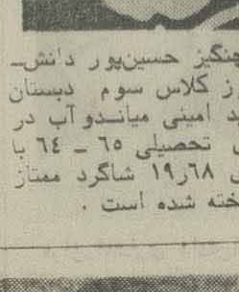 هنگیز حسین‌پور دانش-
ز کلاس سوم دبستان
ید امینی میاندوآب در
ل تحصیلی ٦٥ - ٦٤ با
ل ١٩ر٦٨ شاگرد ممتاز
خته شده است .